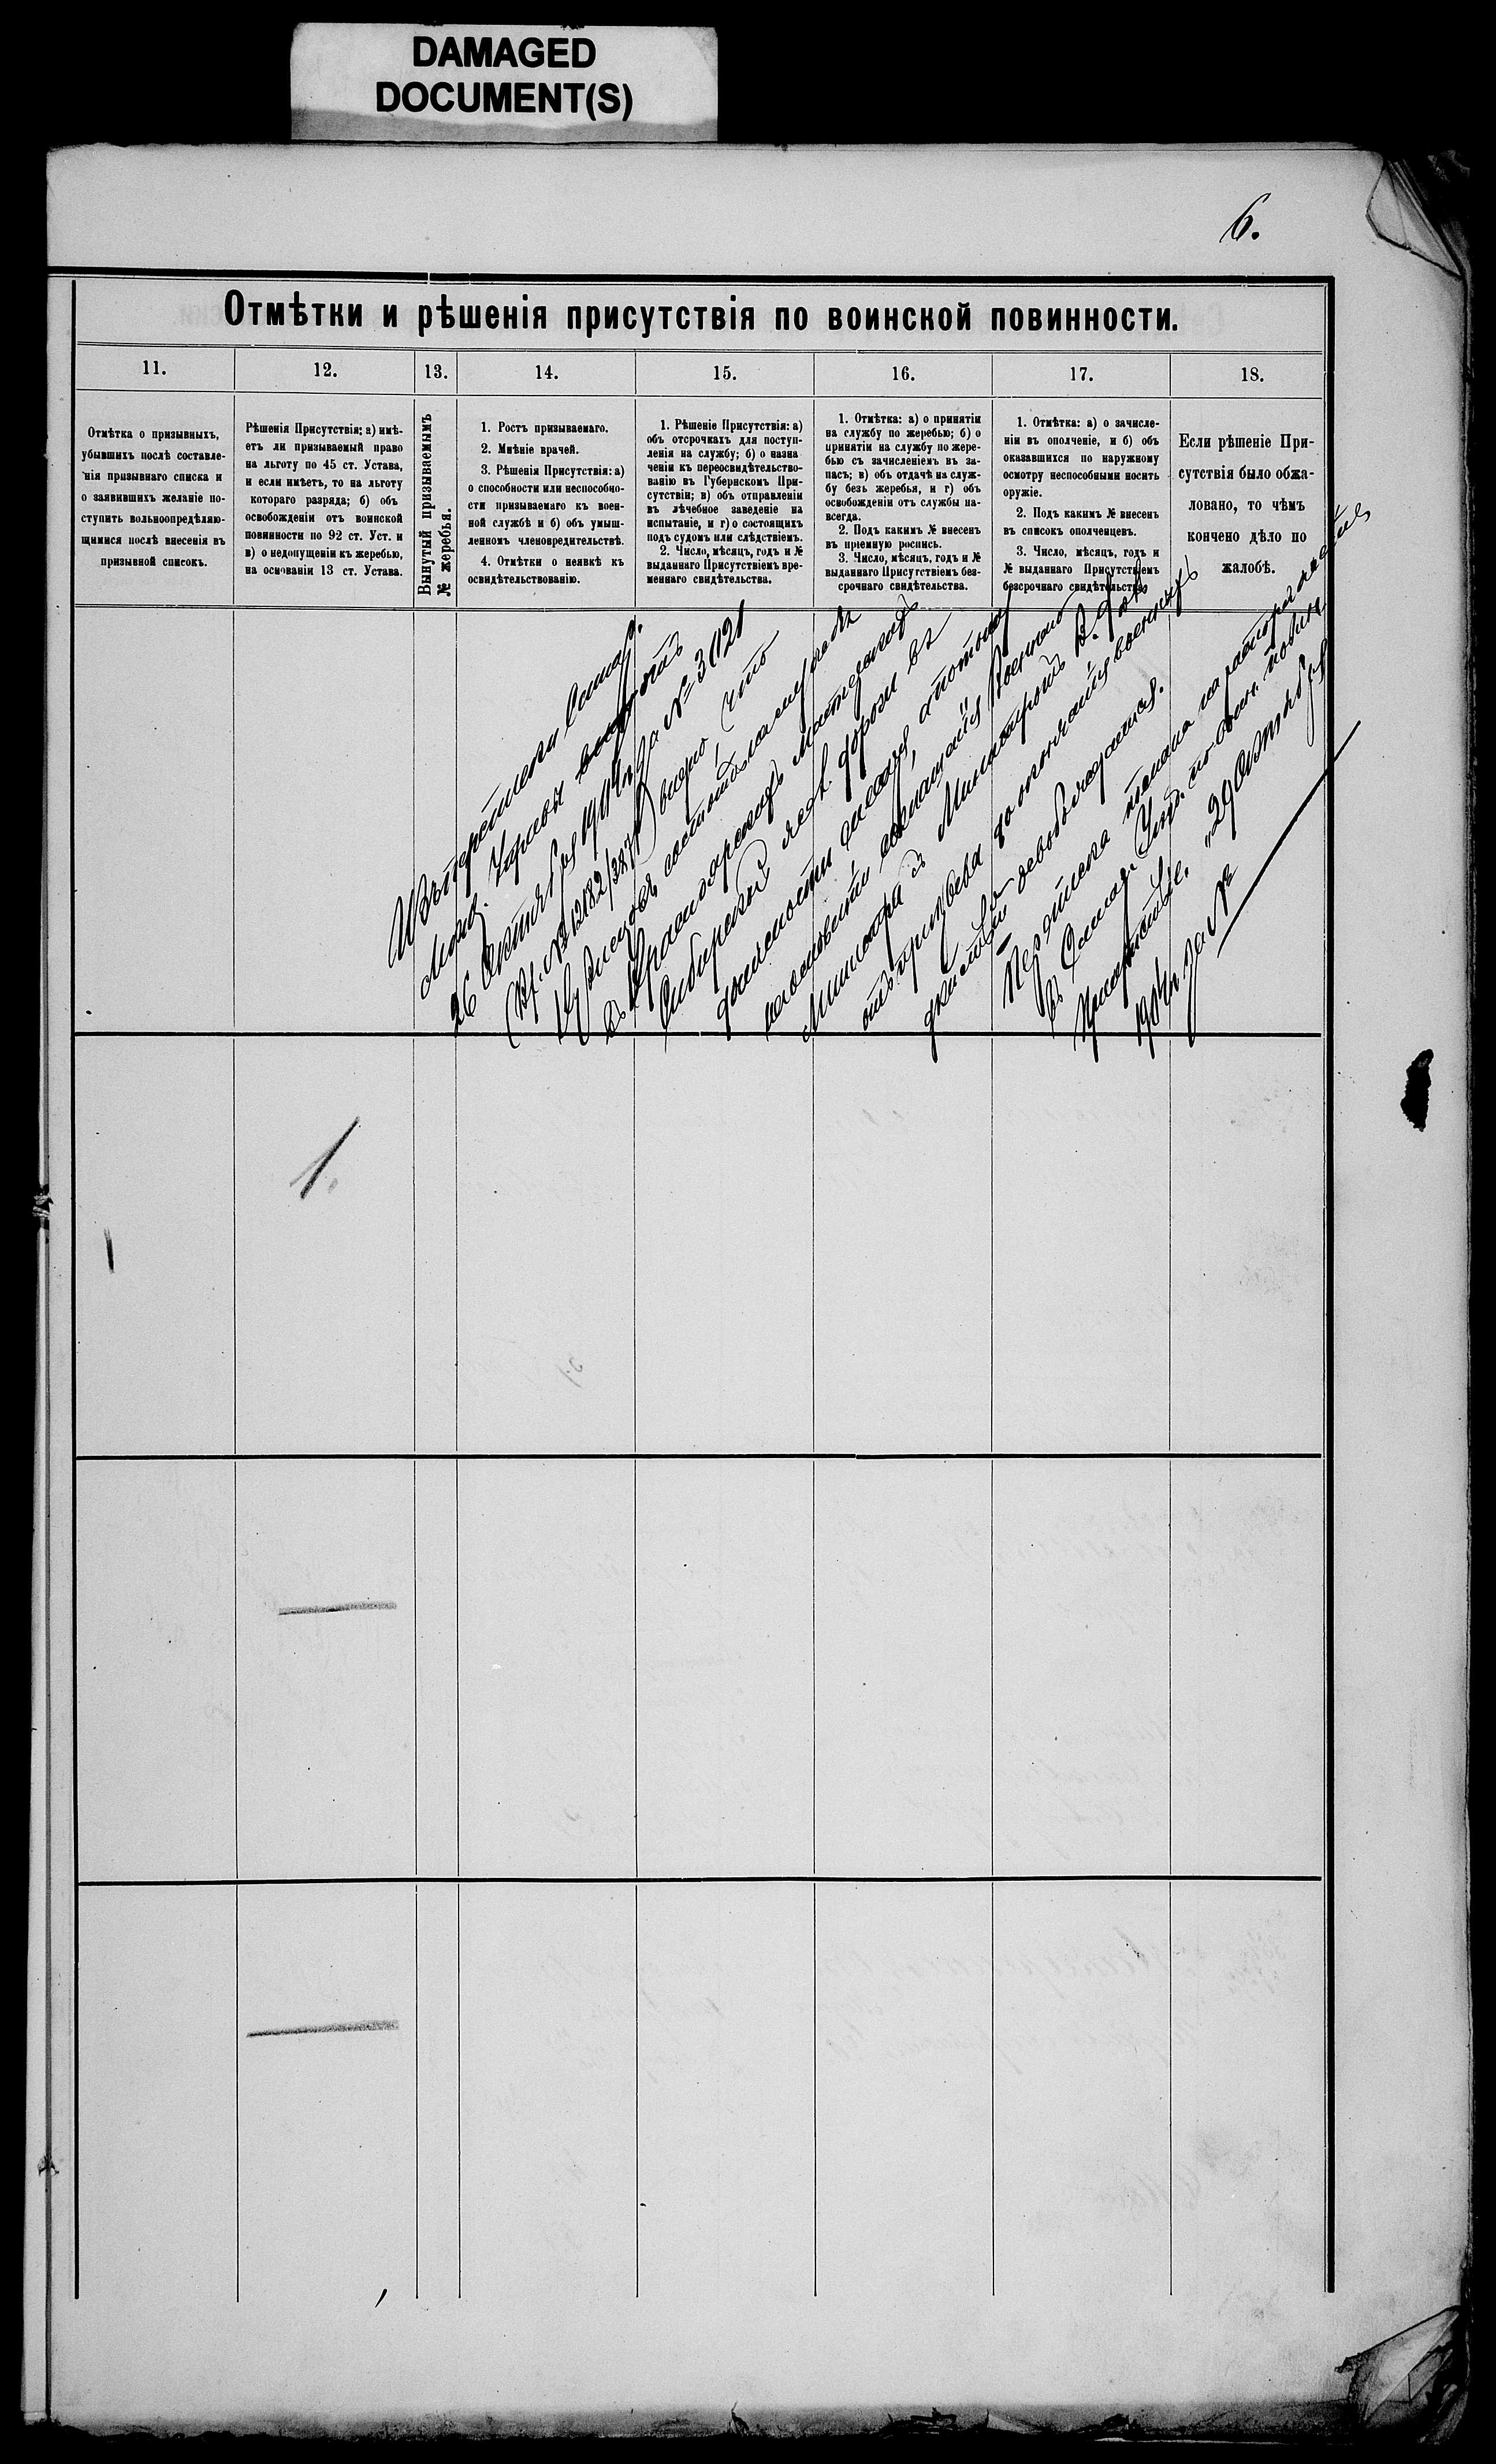 DAMAGED
DOCUMENT(S)
6.
Отмѣтки и рѣшенія присутствія по воинской повинности.
11.
12.
13.
14.
15.
16.
17.
18.
Отмѣтка о призывныхъ,
убывшихъ послѣ составле-
нія призывнаго списка и
о заявившихъ желаніе по-
ступить вольноопредѣляю-
щимися послѣ внесенія въ
призывной списокъ.
Рѣшенія Присутствія: а) имѣ-
етъ ли призываемый право
на льготу по 45 ст. Устава,
и если имѣетъ, то на льготу
котораго разряда; б) объ
освобожденіи отъ воинской
повинности по 92 ст. Уст. и
в) о недопущеніи къ жеребью,
на основаніи 13 ст. Устава.
Вынутый призываемымъ
№ жеребья.
1. Ростъ призываемаго.
2. Мнѣніе врачей.
3. Рѣшенія Присутствія: а)
о способности или неспособно-
сти призываемаго къ воен-
ной службѣ и б) объ умыш-
ленномъ членовредительствѣ.
4. Отмѣтки о неявкѣ къ
освидѣтельствованію.
1. Рѣшеніе Присутствія: а)
объ отсрочкахъ для поступ-
ленія на службу; б) о назна
ченіи къ переосвидѣтельство-
ванію въ Губернскомъ При-
сутствіи; в) объ отправленіи
въ лѣчебное заведеніе на
испытаніе, и г) о состоящихъ
подъ судомъ или слѣдствіемъ.
2. Число, мѣсяцъ, годъ и №
выданнаго Присутствіемъ вре-
меннаго свидѣтельства.
1. Отмѣтка: а) о принятіи
на службу по жеребью; б) о
принятіи на службу по жере-
бью съ зачисленіемъ въ за-
пасъ; в) объ отдачѣ на служ-
бу безъ жеребья, и г) объ
освобожденіи отъ службы на-
всегда.
2. Подъ какимъ № внесенъ
въ пріемную роспись.
3. Число, мѣсяцъ, годъ и №
выданнаго Присутствіемъ без-
срочнаго свидѣтельства.
1. Отмѣтка: а) о зачисле-
ніи въ ополченіе, и б) объ
оказавшихся по наружному
осмотру неспособными носить
оружіе.
2. Подъ какимъ № внесенъ
въ списокъ ополченцевъ.
3. Число, мѣсяцъ, годъ и
№ выданнаго Присутствіемъ
безсрочнаго свидѣтельства.
Если рѣшеніе При-
сутствія было обжа-
ловано, то чѣмъ
кончено дѣло по
жалобѣ.
Управы
26 Октября 1904 г. за № 31121
(Вх. № 12182) видно, что
состоитъ на службѣ
въ
Сибирской жел. дороги въ
должности
Военнаго
Министра съ Министромъ В. Дѣлъ
отъ призыва до окончанія военныхъ
дѣйствій освобождается.
Переписка на распоряженіе
въ Уѣзд. по воин. повин.
Присутствіе. „29 Октября
1904 г. за №
1.